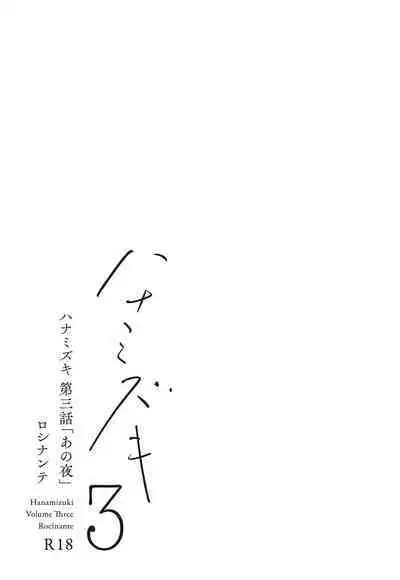 ハナミズキ
3
ハナミズキ 第三話「あの夜」
ロシナンテ
Hanamizuki
Volume Three
Rocinante
R18